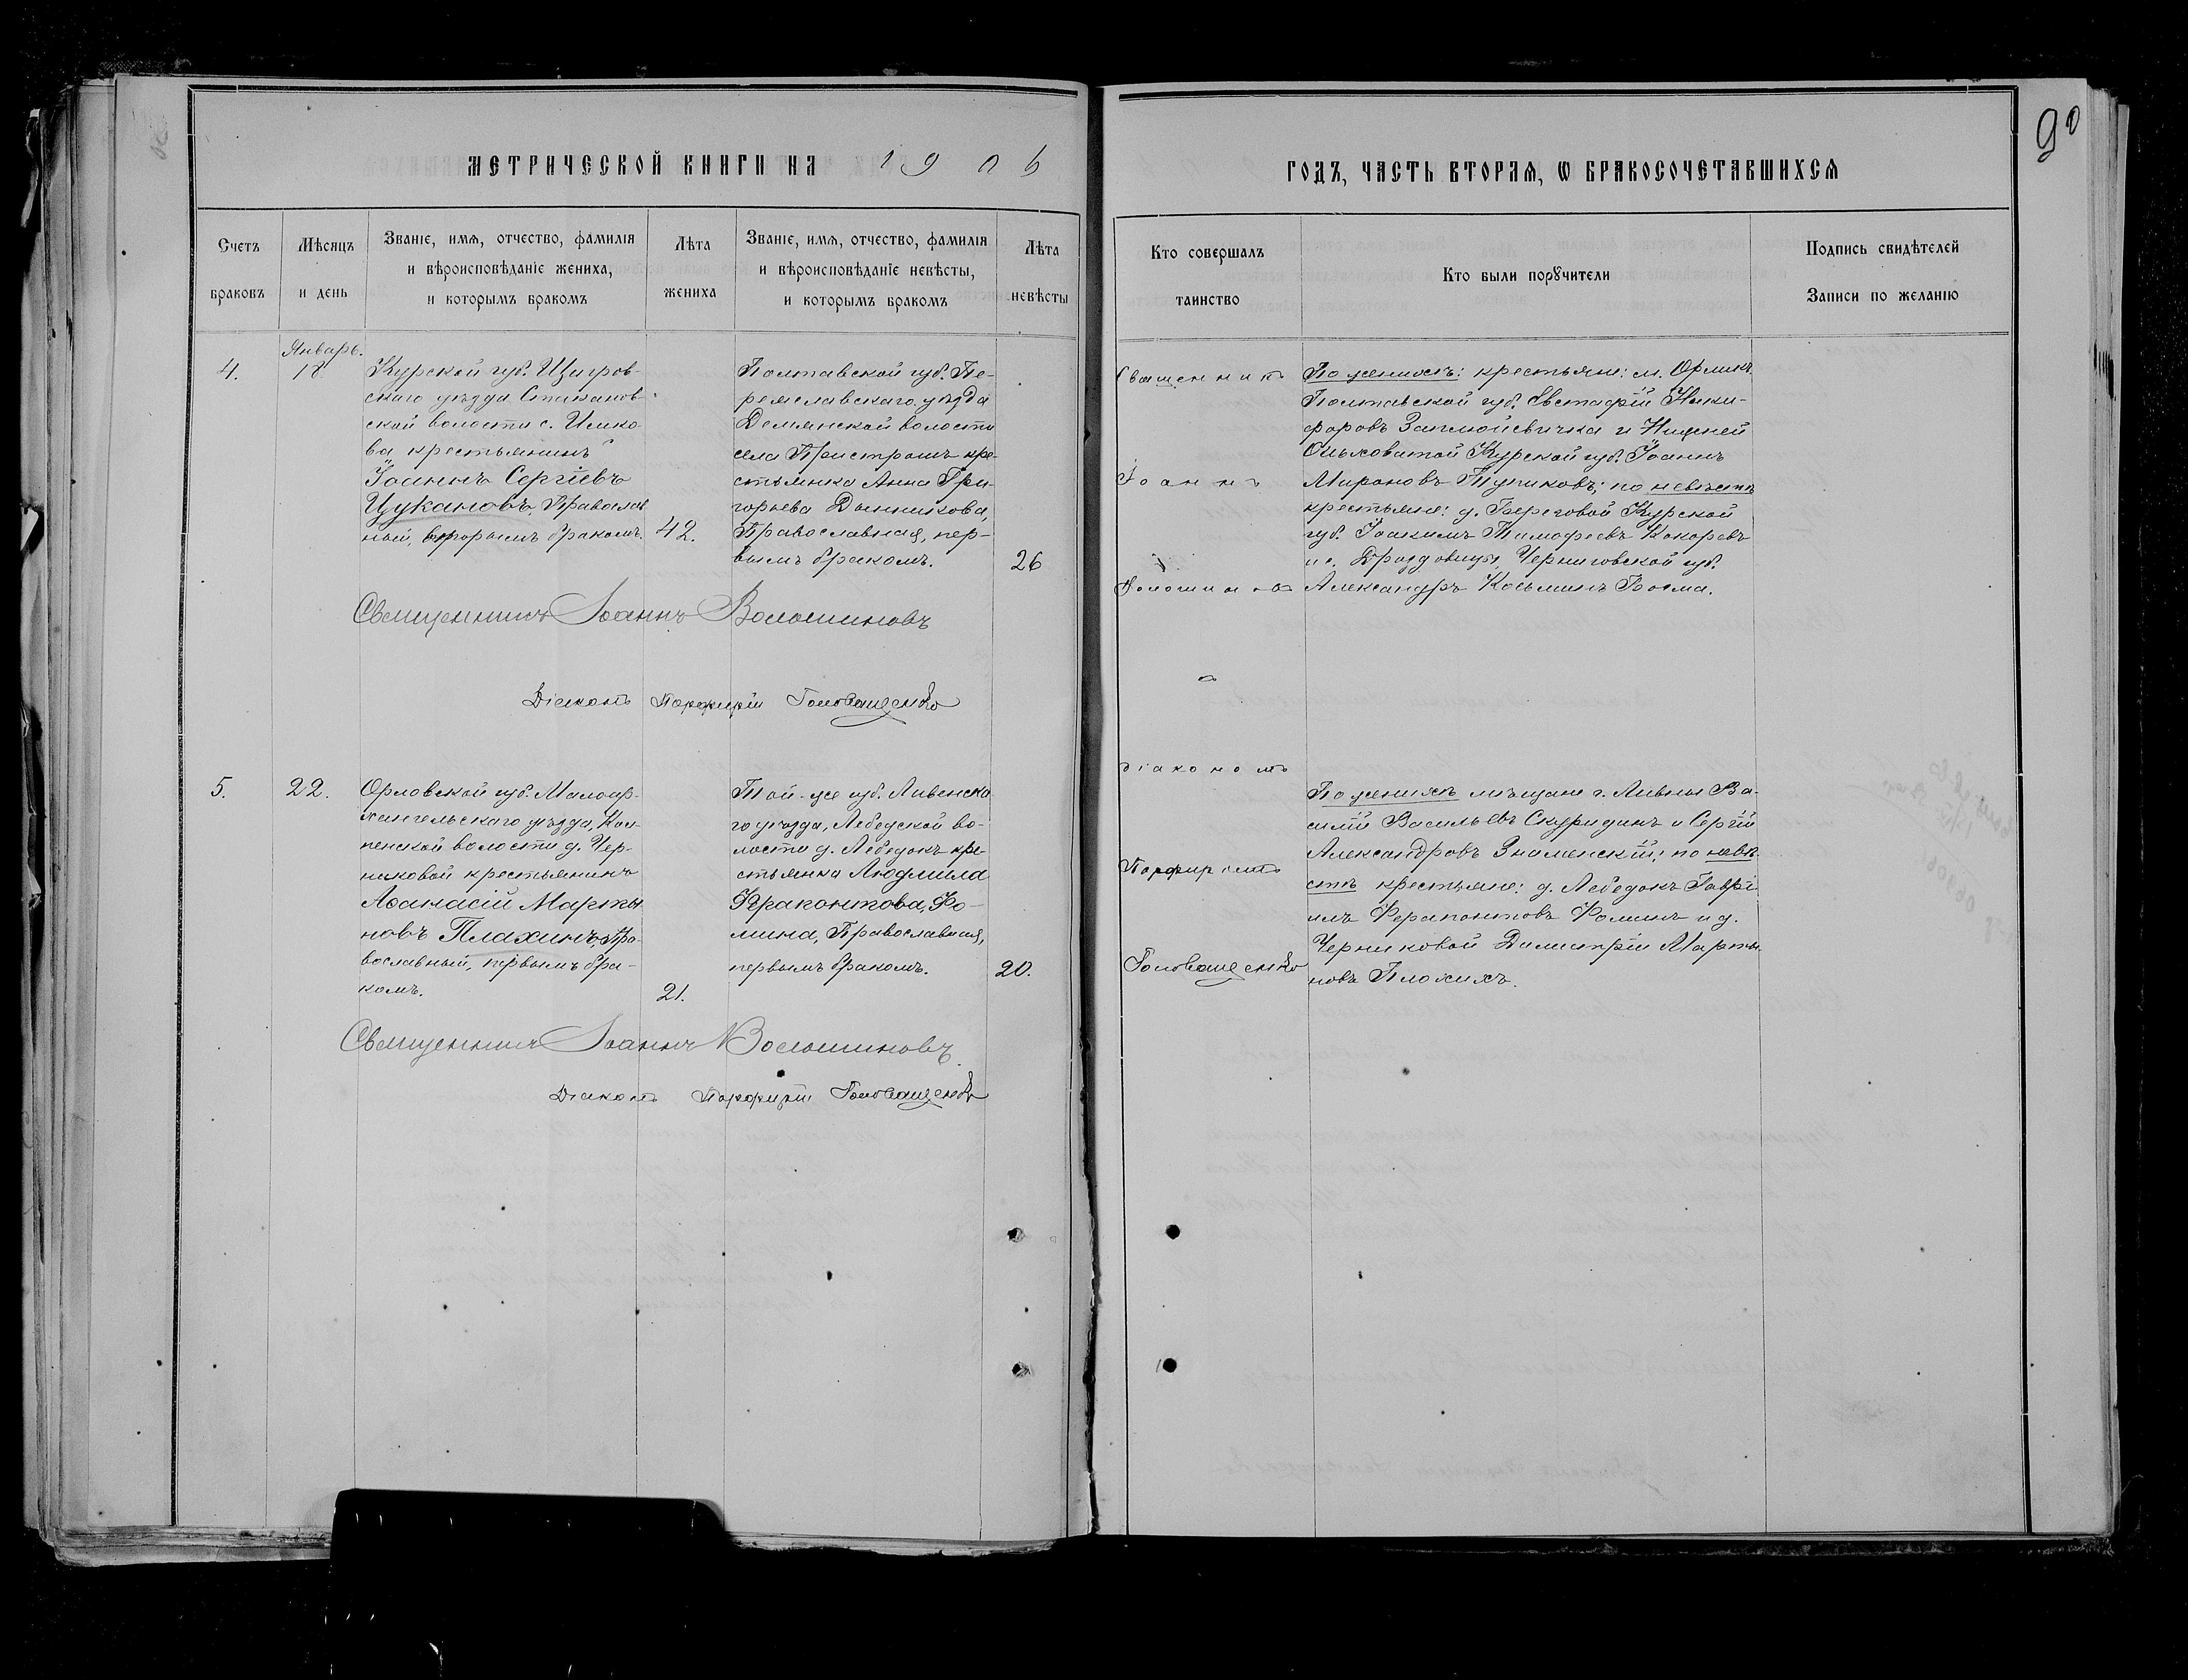 МЕТРИЧЕСКОЙ КНИГИ НА 1906
ГОДЪ, ЧАСТЬ ВТОРАЯ, Ѡ БРАКОСОЧЕТАВШИХСЯ
90
Счетъ
браковъ
Мѣсяцъ
и день
Званіе, имя, отчество, фамилія
и вѣроисповѣданіе жениха,
и которымъ бракомъ
Лѣта
жениха
Званіе, имя, отчество, фамилія
и вѣроисповѣданіе невѣсты,
и которымъ бракомъ
Лѣта
невѣсты
Кто совершалъ
таинство
Кто были порꙋчители
Подпись свидѣтелей
Записи по желанію
4.
Январь.
18
Курской губ. Щигров-
скаго уѣзда Стаканов-
ской волости с.
ва крестьянинъ
Іоаннъ Сергіевъ
Цукановъ, Православ
ный, вторымъ бракомъ.
42.
Полтавской губ. Пе-
реяславскаго уѣзда
Демянской волости
села Пристромъ кре-
стьянка Анна Гри-
горьева Дынникова,
Православная, пер-
вымъ бракомъ.
26
Священникъ
Іоаннъ
Волошиновъ
съ
діакономъ
Порфиріемъ
Головащенко
По женихѣ: крестьяне: м. Орлика
Полтавской губ. Евстафій Ники-
форовъ и Нижней
Ольховатой Курской губ. Іоаннъ
Мироновъ Тупиковъ; по невѣстѣ
крестьяне: д. Береговой Курской
губ. Іоакимъ Тимофеевъ Кокоревъ
и с. Дроздовицы, Черниговской губ.
Александръ Косьминъ
Священникъ Іоаннъ Волошиновъ
Діаконъ Порфирій Головащенко
5.
22.
Орловской губ. Малоар-
хангельскаго уѣзда, Кол-
пенской волости д. Чер-
никовой крестьянинъ
Аѳанасій Марты
новъ Плахинъ, Пра-
вославный, первымъ бра-
комъ.
21.
Той-же губ. Ливенска
го уѣзда, Лебедской во-
лости д. Лебедокъ кре-
стьянка Людмила
Ферапонтова, Фо-
мина, Православная,
первымъ бракомъ.
20.
По женихѣ мѣщане г. Ливны Ва-
силій Васильевъ Скуридинъ и Сергій
Александровъ Знаменскій; по невѣ-
стѣ крестьяне: д. Лебедокъ Гаврі
илъ Ферапонтовъ Фоминъ и д.
Черниковой Димитрій Марты
новъ Плохихъ.
Священникъ Іоаннъ Волошиновъ
Діаконъ Порфирій Головащенко